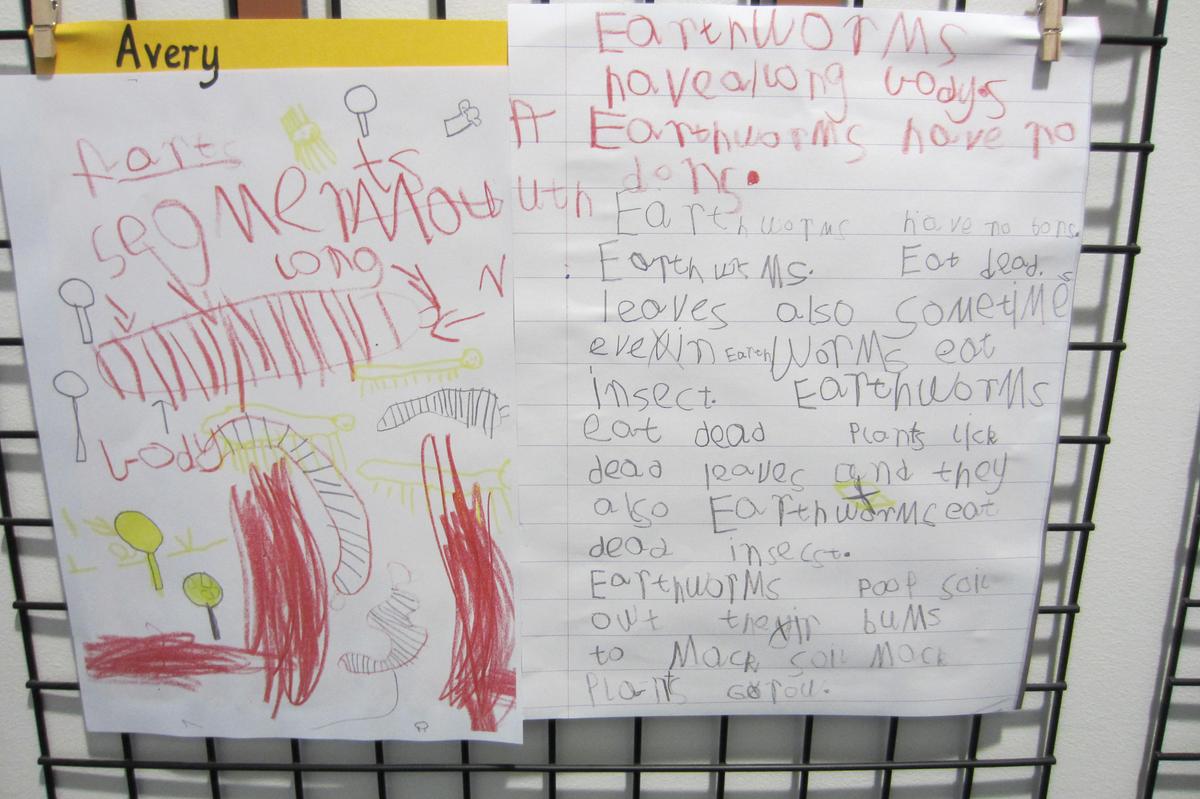 Avery
parts
segments
Mouth
long
body
EarthworMs
havealong bodys
Earthworms have no
dons.
Earthworms have no bons.
Earthworms. Eat dead.
leaves also sometimes
evexin EarthworMs eat
insect. EarthworMs
eat dead Plants lick
dead leaves and they
also EarthworMs eat
dead insecst.
EarthworMs Poop soil
out thexir buMs
to Mack soil Mack
Plants Gorow.